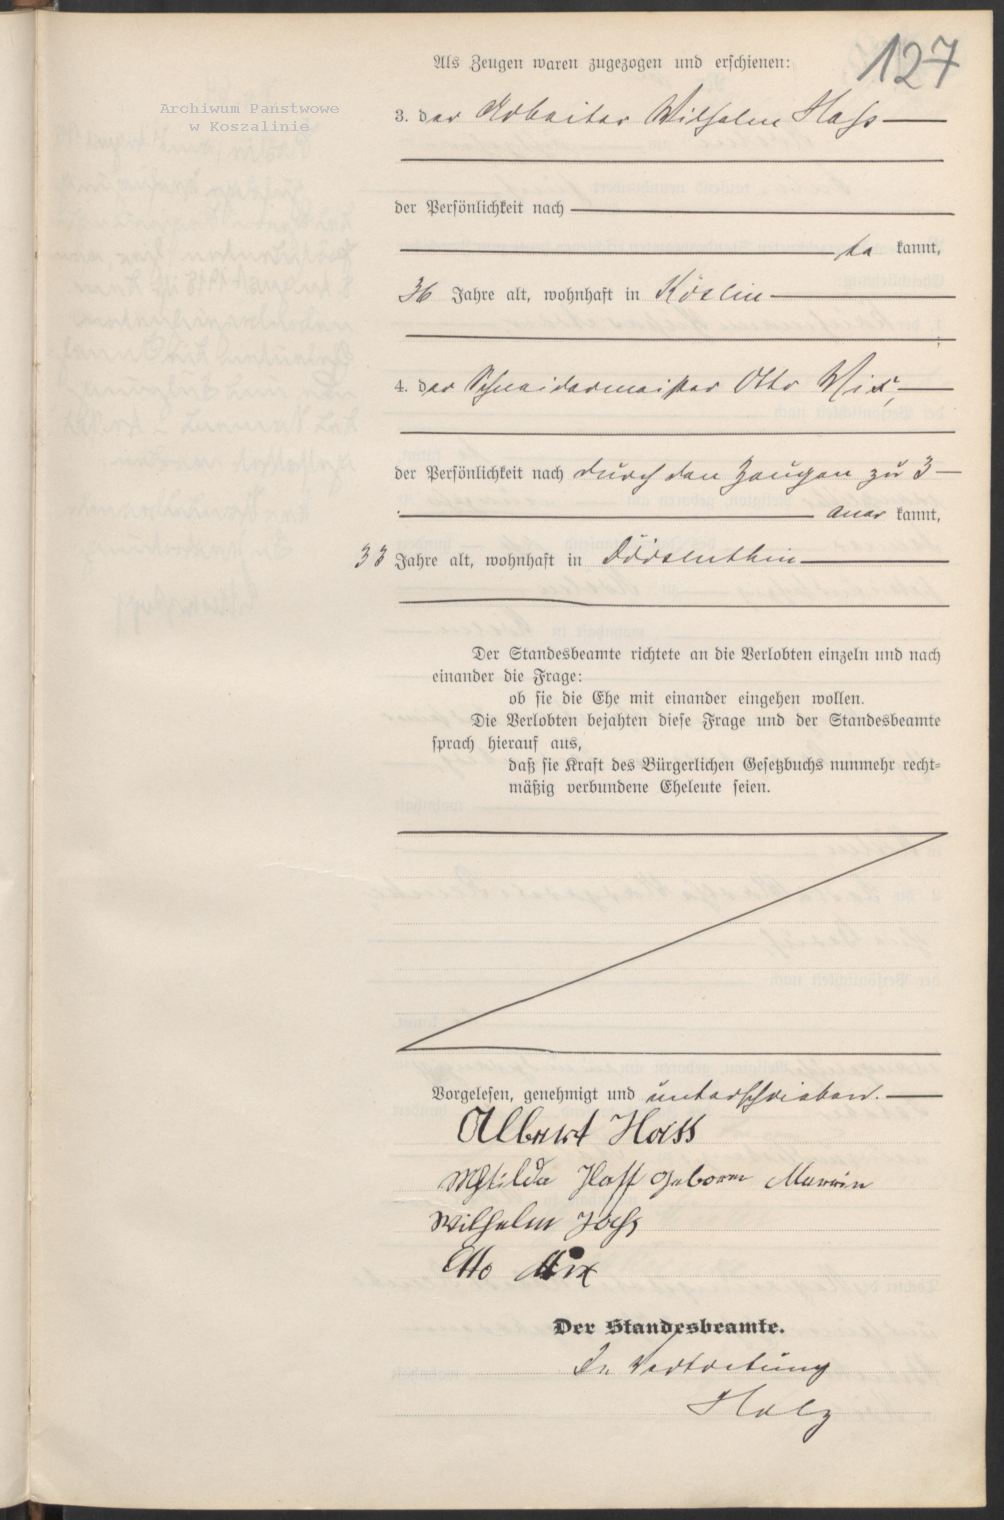 127
Als Zeugen waren zugezogen und erschienen:
Archiwum Państwowe
w Koszalinie
3. der Arbeiter Wilhelm Hass
der Persönlichkeit nach
be kannt,
36 Jahre alt, wohnhaft in Köslin
4. der Schneidermeister Otto Mix,
der Persönlichkeit nach durch den Zeugen zu 3
aner kannt,
33 Jahre alt, wohnhaft in Dörsenthin
Der Standesbeamte richtete an die Verlobten einzeln und nach
einander die Frage:
ob sie die Ehe mit einander eingehen wollen.
Die Verlobten bejahten diese Frage und der Standesbeamte
sprach hierauf aus,
daß sie kraft des Bürgerlichen Gesetzbuchs nunmehr recht-
mäßig verbundene Eheleute seien.
Vorgelesen, genehmigt und unterschrieben.
Albert Hass
Hass geborne
Wilhelm Hass
Otto Mix
Der Standesbeamte.
In Vertretung
Holz